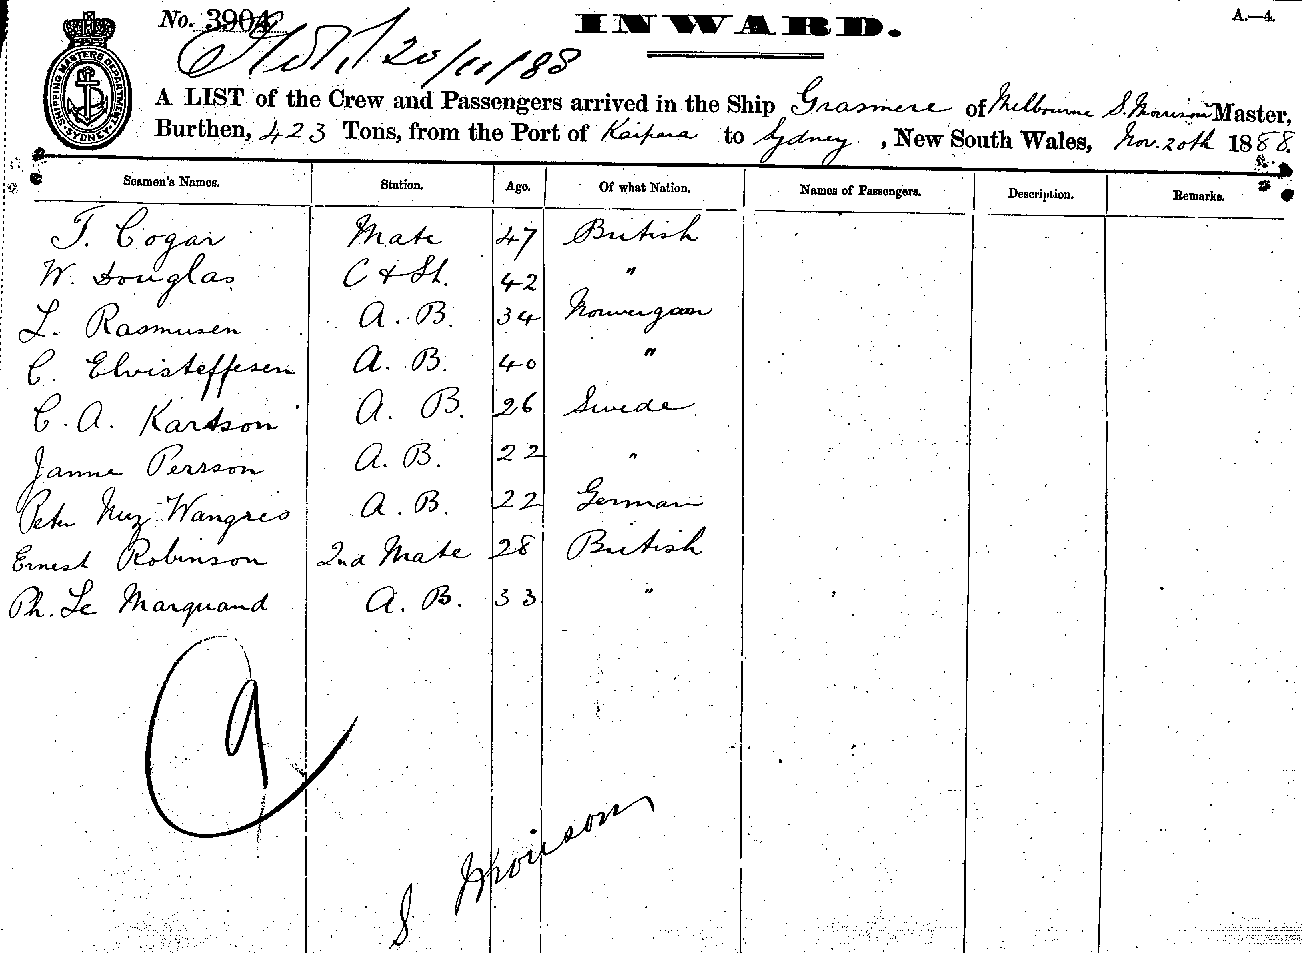 No. 3904
INWARD.
A.—4.
20/11/88
SHIPPING MASTERS DEPARTMENT SYDNEY
A LIST of the Crew and Passengers arrived in the Ship Grasmere of Melbourne S. Morrison Master,
Burthen, 423 Tons, from the Port of Kaipara to Sydney, New South Wales, Nov. 20th 1888.
Seamen's Names. Station. Age. Of what Nation. Names of Passengers. Description. Remarks.
T. Cogar Mate 47 British
W. Douglas C & St. 42 "
L. Rasmusen A. B. 34 Norwegan
C. Elvisteffesen A. B. 40 "
C. A. Karlson A. B. 26 Swede
Janne Perrson A. B. 22 "
Peter Wangris A. B. 22 German
Ernest Robinson 2nd Mate 28 British
Ph. Le Marquand A. B. 33 "
9
S Morrison